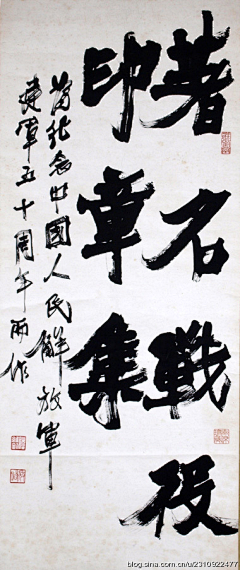 著名戰役
印章集
為紀念中國人民解放軍
建軍五十周年而作
blog.sina.com.cn/u/2310922477